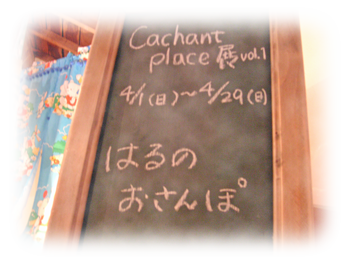 Cachant
place 展 vol.1
4/1(日)～4/29(日)
はるの
おさんぽ